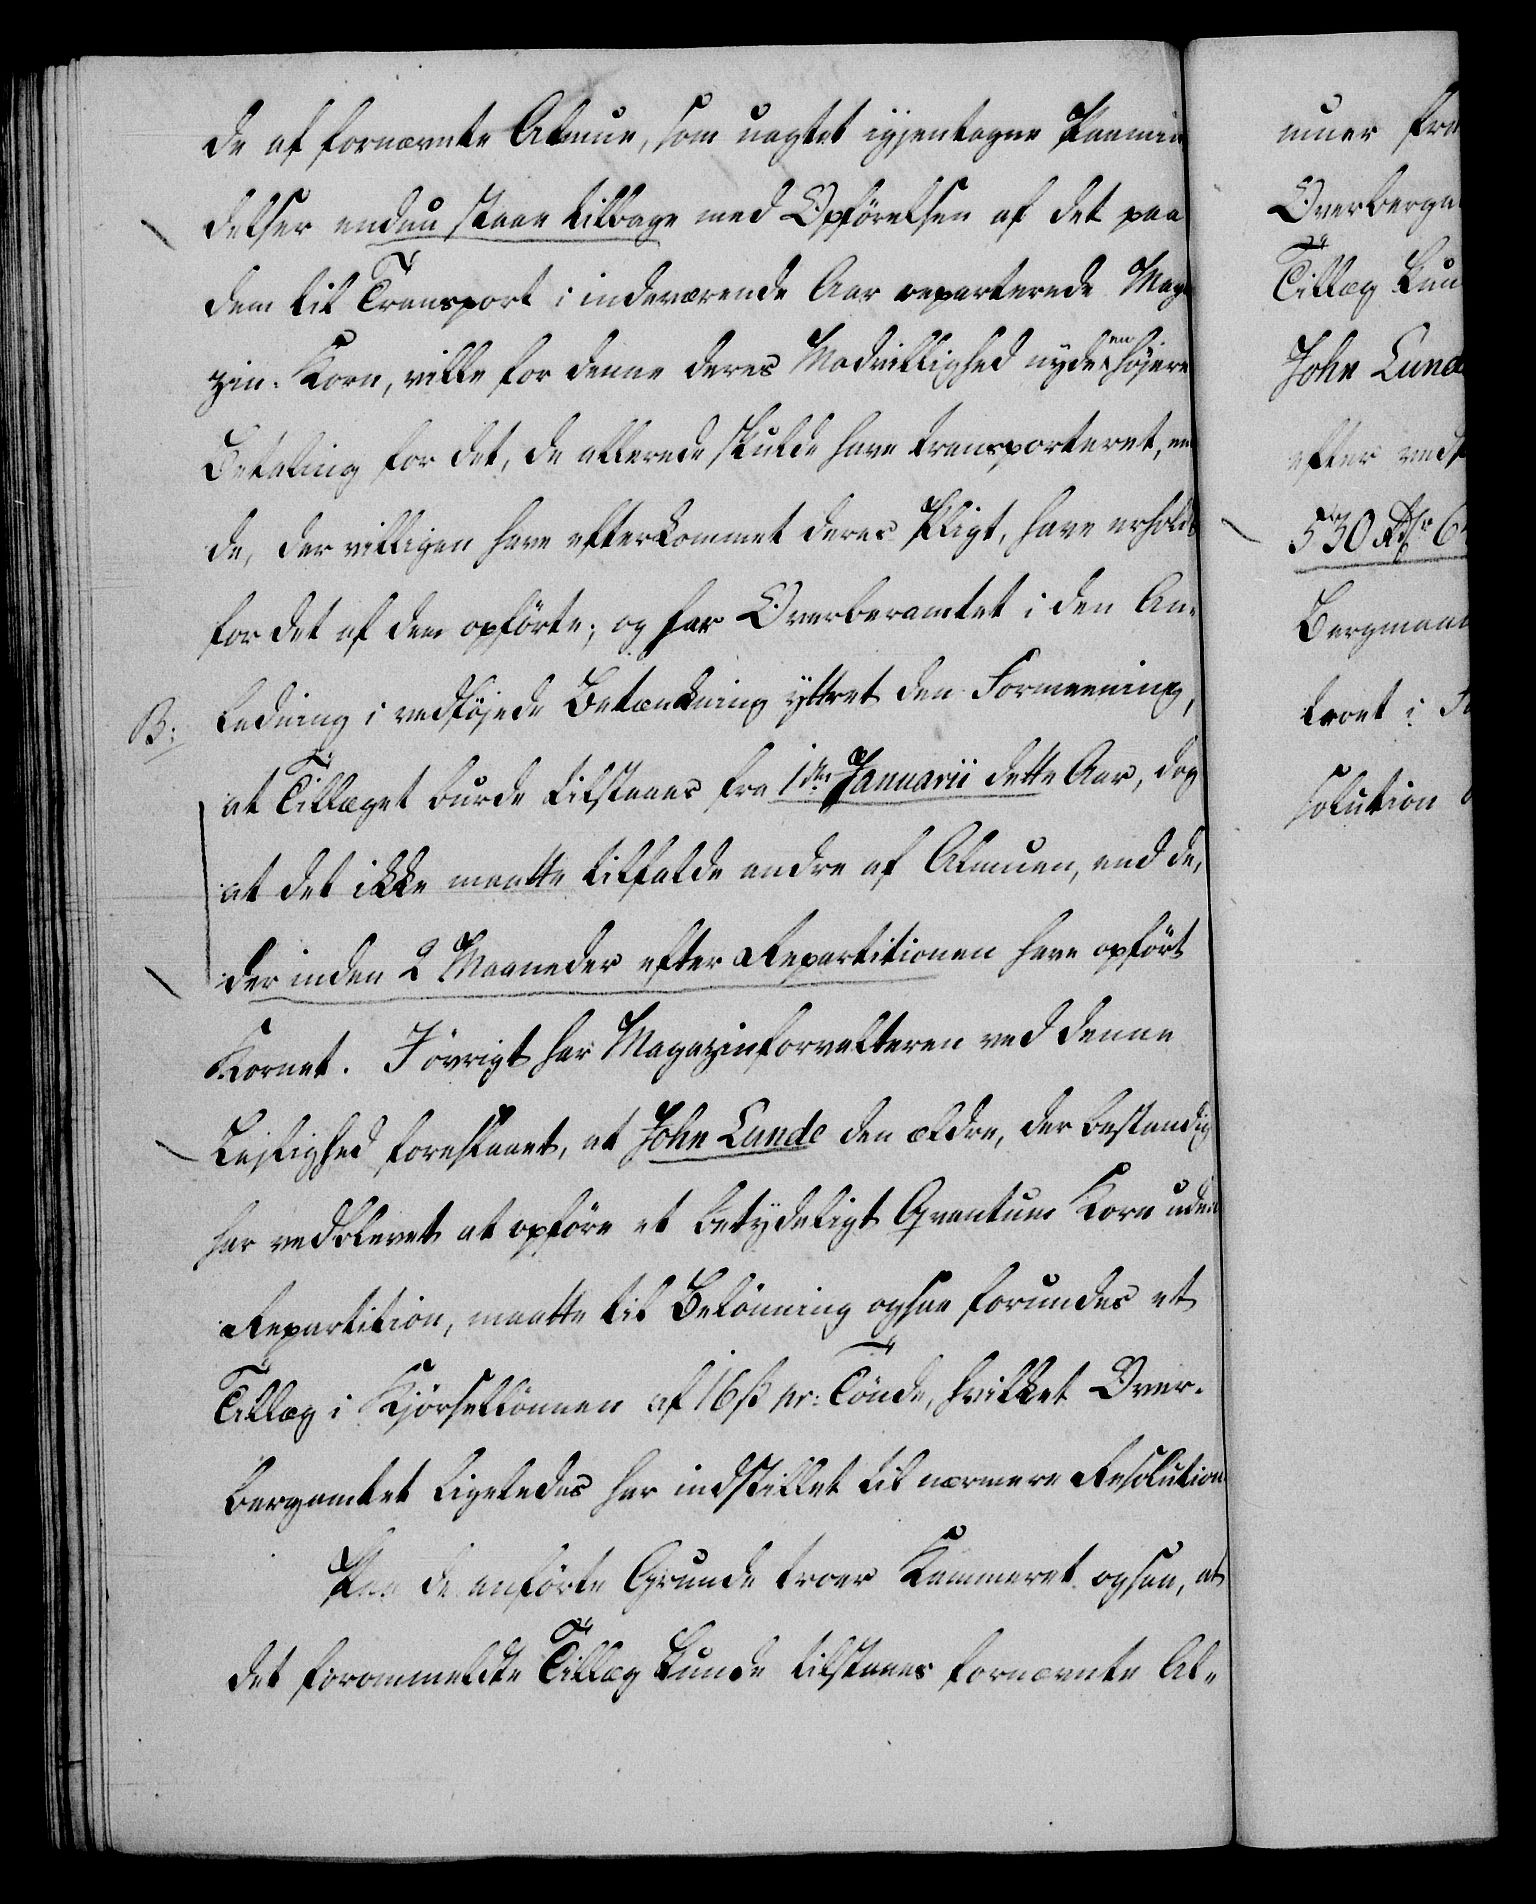 de af fornævnte Almue, som uagtet igjentagne Paamin
delser endnu staae tilbage med Opförelsen af det paa
dem til Transport i indeværende Aar reparterede Maga
zin-Korn, ville for denne deres Modvillighed nyde en höjere
Betaling for det, de allerede skulde have transporteret, en
de, der villigen have efterkommet deres Pligt, have erholdt
for det af dem opförte; og har Overberamtet i den An-
B: ledning i vedföjede Betænkning yttret den Formeening,
at Tillæget burde tilstaaes fra 1ste Januarii dette Aar, dog
at det ikke maatte tilfalde andre af Almuen, end de,
der inden 2 Maaneder efter Repartitionen have opfört
Kornet. I övrigt har Magazinforvalteren ved denne
Lejlighed forestaaet, at John Lunde den ældre, der bestandig
har vedblevet at opföre et betydeligt Qvantum Korn uden
Repartition, maatte til Belönning ogsaa forundes et
Tillæg i Kjörsellönnen af 16 ß pr: Tönde, hvilket Over-
bergamtet ligeledes har indstillet til nærmere Resolution
Paa de anförte Grunde troer Kammeret ogsaa, at
det forommeldte Tillæg kunde tilstaaes fornævnte Al-
muer fra
Overberga
Tillæg kun
John Lund
efter veds
530 Rdr 6
Bergmand
troet i
solution